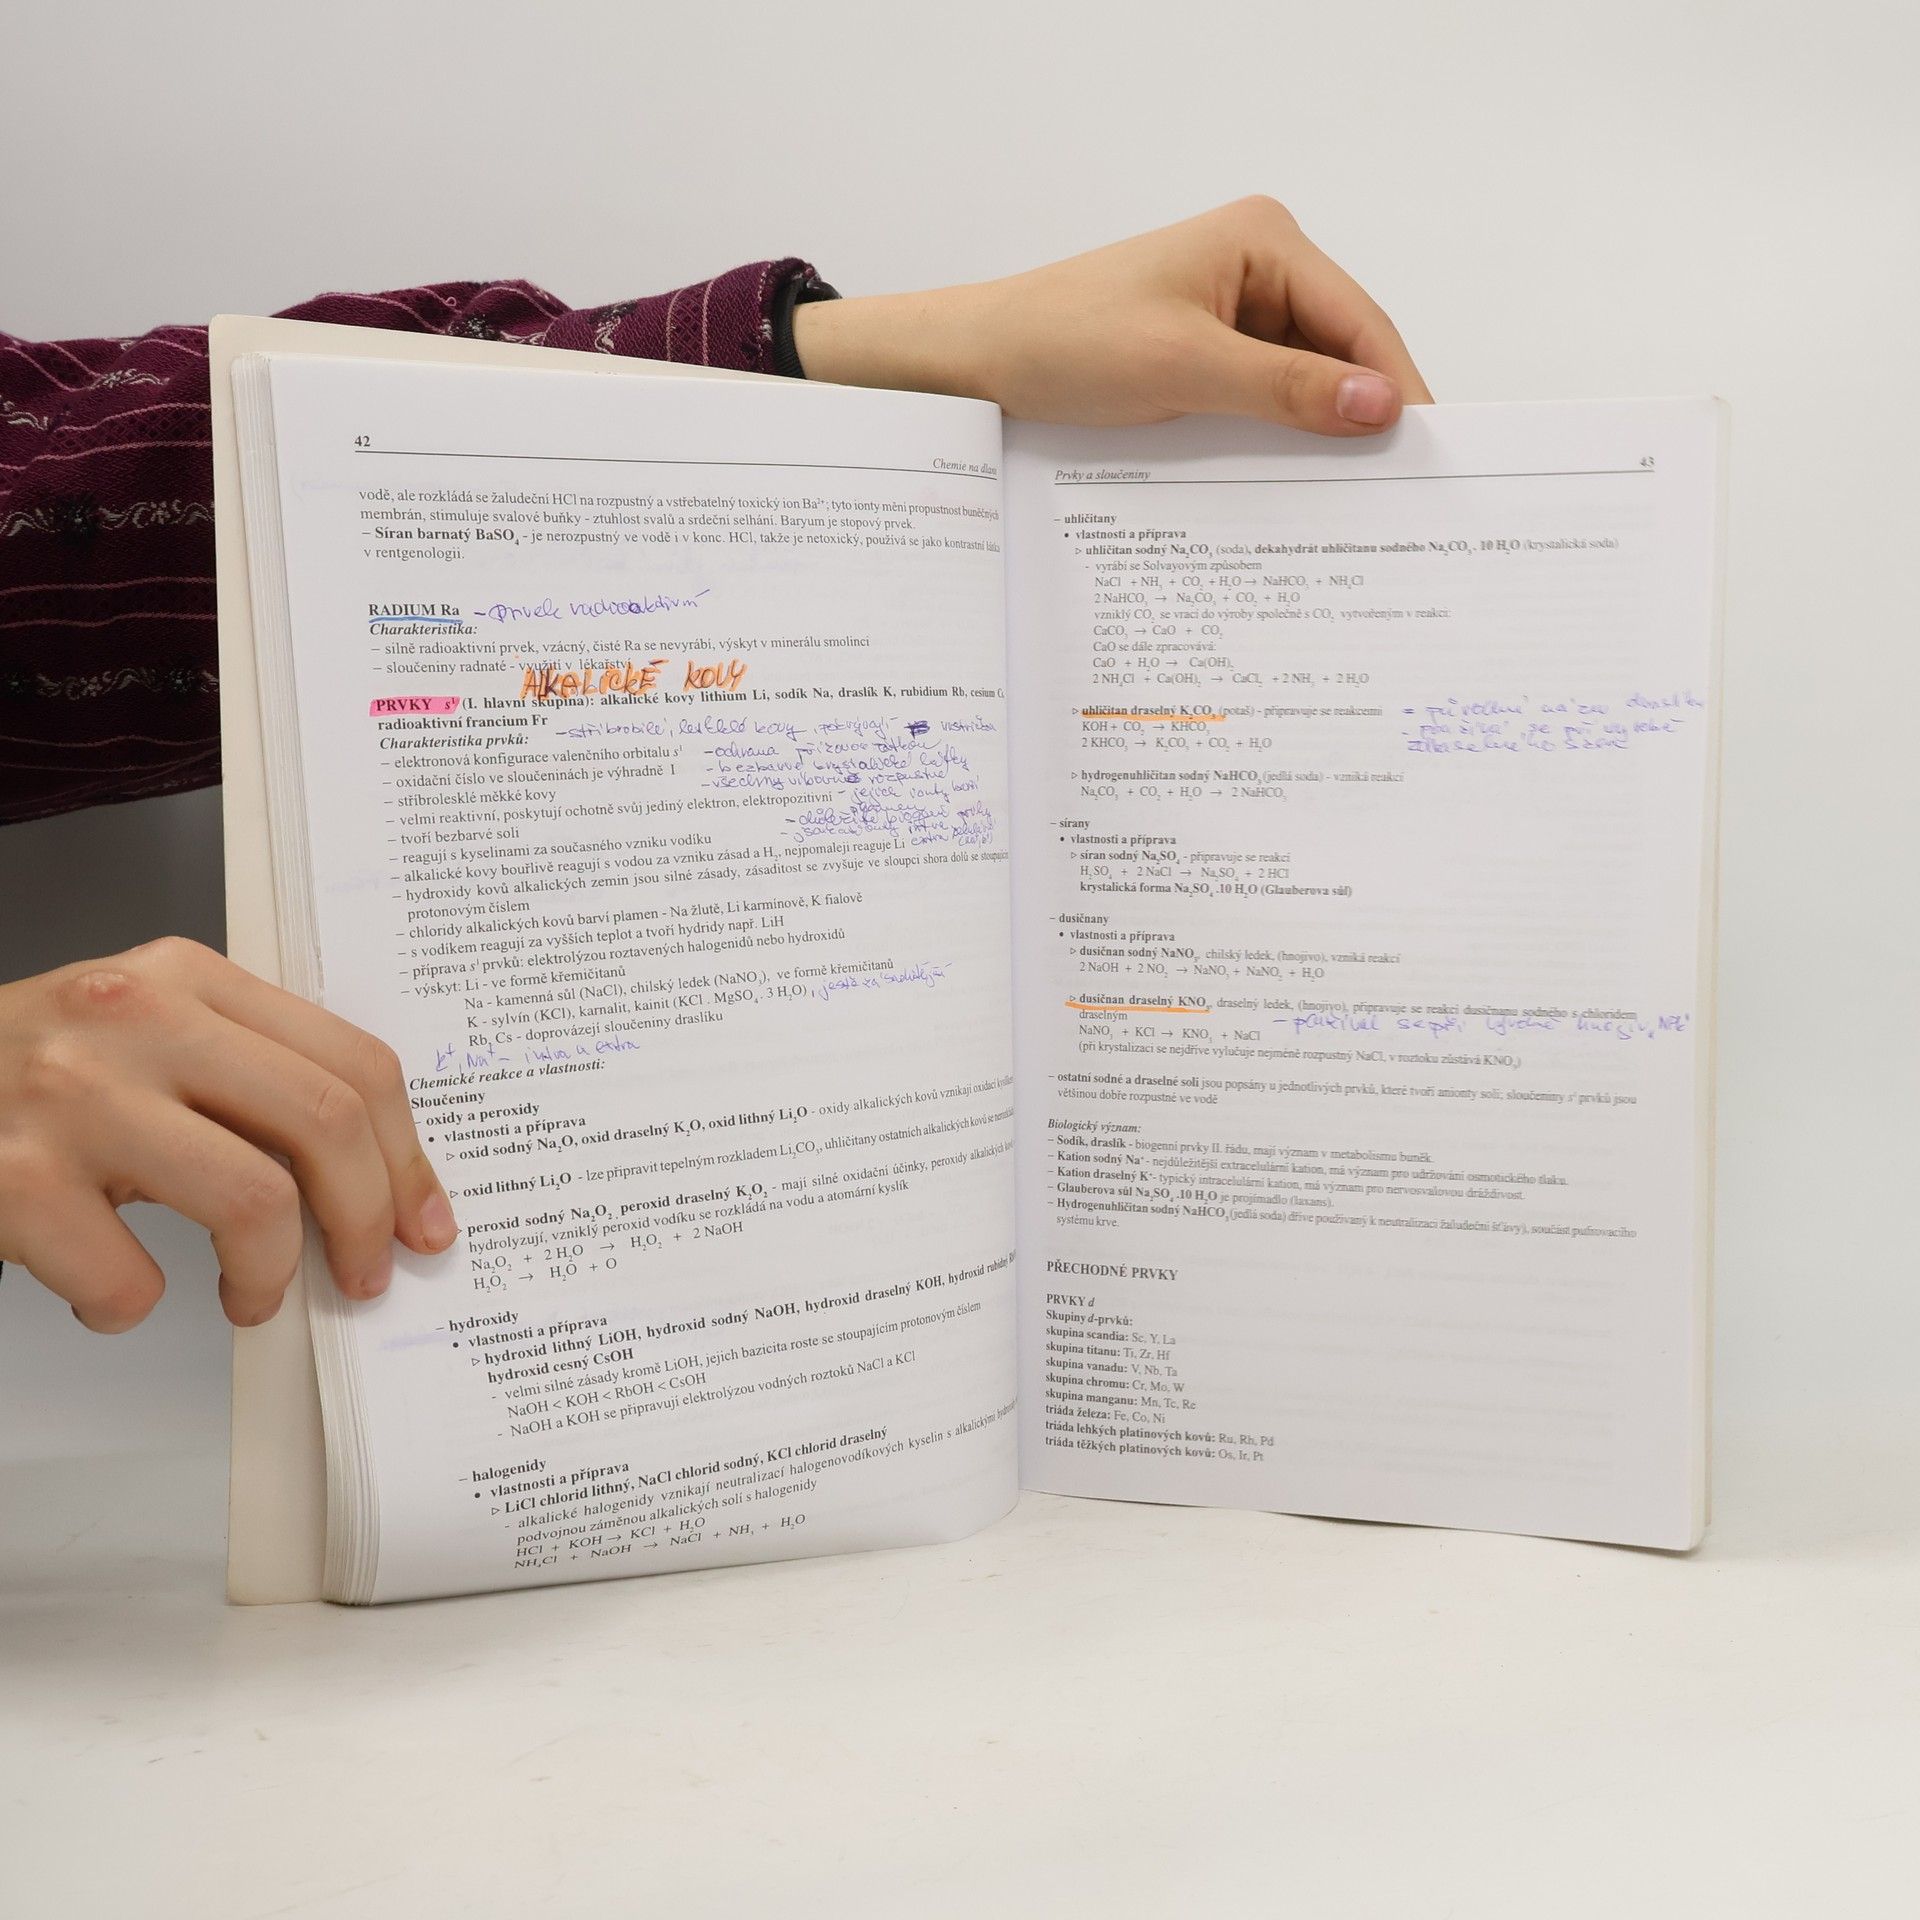 42
Chemie na dlani
vodě, ale rozkládá se žaludeční HCl na rozpustný a vstřebatelný toxický ion Ba²⁺; tyto ionty mění propustnost buněčných
membrán, stimuluje svalové buňky - ztuhlost svalů a srdeční selhání. Baryum je stopový prvek.
– Síran barnatý BaSO₄ - je nerozpustný ve vodě i v konc. HCl, takže je netoxický, používá se jako kontrastní látka
v rentgenologii.
RADIUM Ra - prvek radioaktivní
Charakteristika:
– silně radioaktivní prvek, vzácný, čisté Ra se nevyrábí, výskyt v minerálu smolinci
– sloučeniny radnaté - využití v lékařství
ALKALICKÉ KOVY
PRVKY s¹ (I. hlavní skupina): alkalické kovy lithium Li, sodík Na, draslík K, rubidium Rb, cesium
radioaktivní francium Fr
Charakteristika prvků:
– elektronová konfigurace valenčního orbitalu s¹
– oxidační číslo ve sloučeninách je výhradně I
– stříbrolesklé měkké kovy
– velmi reaktivní, poskytují ochotně svůj jediný elektron, elektropozitivní
– tvoří bezbarvé soli
– reagují s kyselinami za současného vzniku vodíku
– alkalické kovy bouřlivě reagují s vodou za vzniku zásad a H₂, nejpomaleji reaguje Li
– hydroxidy kovů alkalických zemin jsou silné zásady, zásaditost se zvyšuje ve sloupci shora dolů se stoupajícím
protonovým číslem
– chloridy alkalických kovů barví plamen - Na žlutě, Li karmínově, K fialově
– s vodíkem reagují za vyšších teplot a tvoří hydridy např. LiH
– příprava s¹ prvků: elektrolýzou roztavených halogenidů nebo hydroxidů
– výskyt: Li - ve formě křemičitanů
Na - kamenná sůl (NaCl), chilský ledek (NaNO₃), ve formě křemičitanů
K - sylvín (KCl), karnalit, kainit (KCl . MgSO₄ . 3 H₂O)
Rb, Cs - doprovázejí sloučeniny draslíku
K⁺, Na⁺ - intra a extra
Chemické reakce a vlastnosti:
Sloučeniny
– oxidy a peroxidy
• vlastnosti a příprava
▹ oxid sodný Na₂O, oxid draselný K₂O, oxid lithný Li₂O - oxidy alkalických kovů vznikají oxidací
▹ oxid lithný Li₂O - lze připravit tepelným rozkladem Li₂CO₃, uhličitany ostatních alkalických kovů se
▹ peroxid sodný Na₂O₂, peroxid draselný K₂O₂ - mají silné oxidační účinky, peroxidy alkalických
hydrolyzují, vzniklý peroxid vodíku se rozkládá na vodu a atomární kyslík
Na₂O₂ + 2 H₂O → H₂O₂ + 2 NaOH
H₂O₂ → H₂O + O
– hydroxidy
• vlastnosti a příprava
▹ hydroxid lithný LiOH, hydroxid sodný NaOH, hydroxid draselný KOH, hydroxid rubidný
hydroxid cesný CsOH
- velmi silné zásady kromě LiOH, jejich bazicita roste se stoupajícím protonovým číslem
NaOH < KOH < RbOH < CsOH
- NaOH a KOH se připravují elektrolýzou vodných roztoků NaCl a KCl
– halogenidy
• vlastnosti a příprava
▹ LiCl chlorid lithný, NaCl chlorid sodný, KCl chlorid draselný
- alkalické halogenidy vznikají neutralizací halogenovodíkových kyselin s alkalickými
podvojnou záměnou alkalických solí s halogenidy
HCl + KOH → KCl + H₂O
NH₄Cl + NaOH → NaCl + NH₃ + H₂O
Prvky a sloučeniny
43
– uhličitany
• vlastnosti a příprava
▹ uhličitan sodný Na₂CO₃ (soda), dekahydrát uhličitanu sodného Na₂CO₃ . 10 H₂O (krystalická soda)
- vyrábí se Solvayovým způsobem
NaCl + NH₃ + CO₂ + H₂O → NaHCO₃ + NH₄Cl
2 NaHCO₃ → Na₂CO₃ + CO₂ + H₂O
vzniklý CO₂ se vrací do výroby společně s CO₂ vytvořeným v reakci:
CaCO₃ → CaO + CO₂
CaO se dále zpracovává:
CaO + H₂O → Ca(OH)₂
2 NH₄Cl + Ca(OH)₂ → CaCl₂ + 2 NH₃ + 2 H₂O
▹ uhličitan draselný K₂CO₃ (potaš) - připravuje se reakcemi
KOH + CO₂ → KHCO₃
2 KHCO₃ → K₂CO₃ + CO₂ + H₂O
▹ hydrogenuhličitan sodný NaHCO₃ (jedlá soda) - vzniká reakcí
Na₂CO₃ + CO₂ + H₂O → 2 NaHCO₃
– sírany
• vlastnosti a příprava
▹ síran sodný Na₂SO₄ - připravuje se reakcí
H₂SO₄ + 2 NaCl → Na₂SO₄ + 2 HCl
krystalická forma Na₂SO₄ . 10 H₂O (Glauberova sůl)
– dusičnany
• vlastnosti a příprava
▹ dusičnan sodný NaNO₃, chilský ledek, (hnojivo), vzniká reakcí
2 NaOH + 2 NO₂ → NaNO₃ + NaNO₂ + H₂O
▹ dusičnan draselný KNO₃, draselný ledek, (hnojivo), připravuje se reakcí dusičnanu sodného s chloridem
draselným
NaNO₃ + KCl → KNO₃ + NaCl
(při krystalizaci se nejdříve vylučuje nejméně rozpustný NaCl, v roztoku zůstává KNO₃)
– ostatní sodné a draselné soli jsou popsány u jednotlivých prvků, které tvoří anionty soli; sloučeniny s¹ prvků jsou
většinou dobře rozpustné ve vodě
Biologický význam:
– Sodík, draslík - biogenní prvky II. řádu, mají význam v metabolismu buněk.
– Kation sodný Na⁺ - nejdůležitější extracelulární kation, má význam pro udržování osmotického tlaku.
– Kation draselný K⁺- typický intracelulární kation, má význam pro nervosvalovou dráždivost.
– Glauberova sůl Na₂SO₄ .10 H₂O je projímadlo (laxans).
– Hydrogenuhličitan sodný NaHCO₃ (jedlá soda) dříve používaný k neutralizaci žaludeční šťávy), součást pufrovacího
systému krve.
PŘECHODNÉ PRVKY
PRVKY d
Skupiny d-prvků:
skupina scandia: Sc, Y, La
skupina titanu: Ti, Zr, Hf
skupina vanadu: V, Nb, Ta
skupina chromu: Cr, Mo, W
skupina manganu: Mn, Tc, Re
triáda železa: Fe, Co, Ni
triáda lehkých platinových kovů: Ru, Rh, Pd
triáda těžkých platinových kovů: Os, Ir, Pt